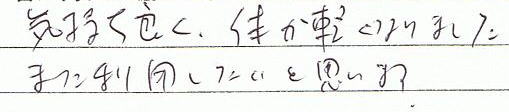 気持ち良く、体が軽くなりました
また利用したいと思います